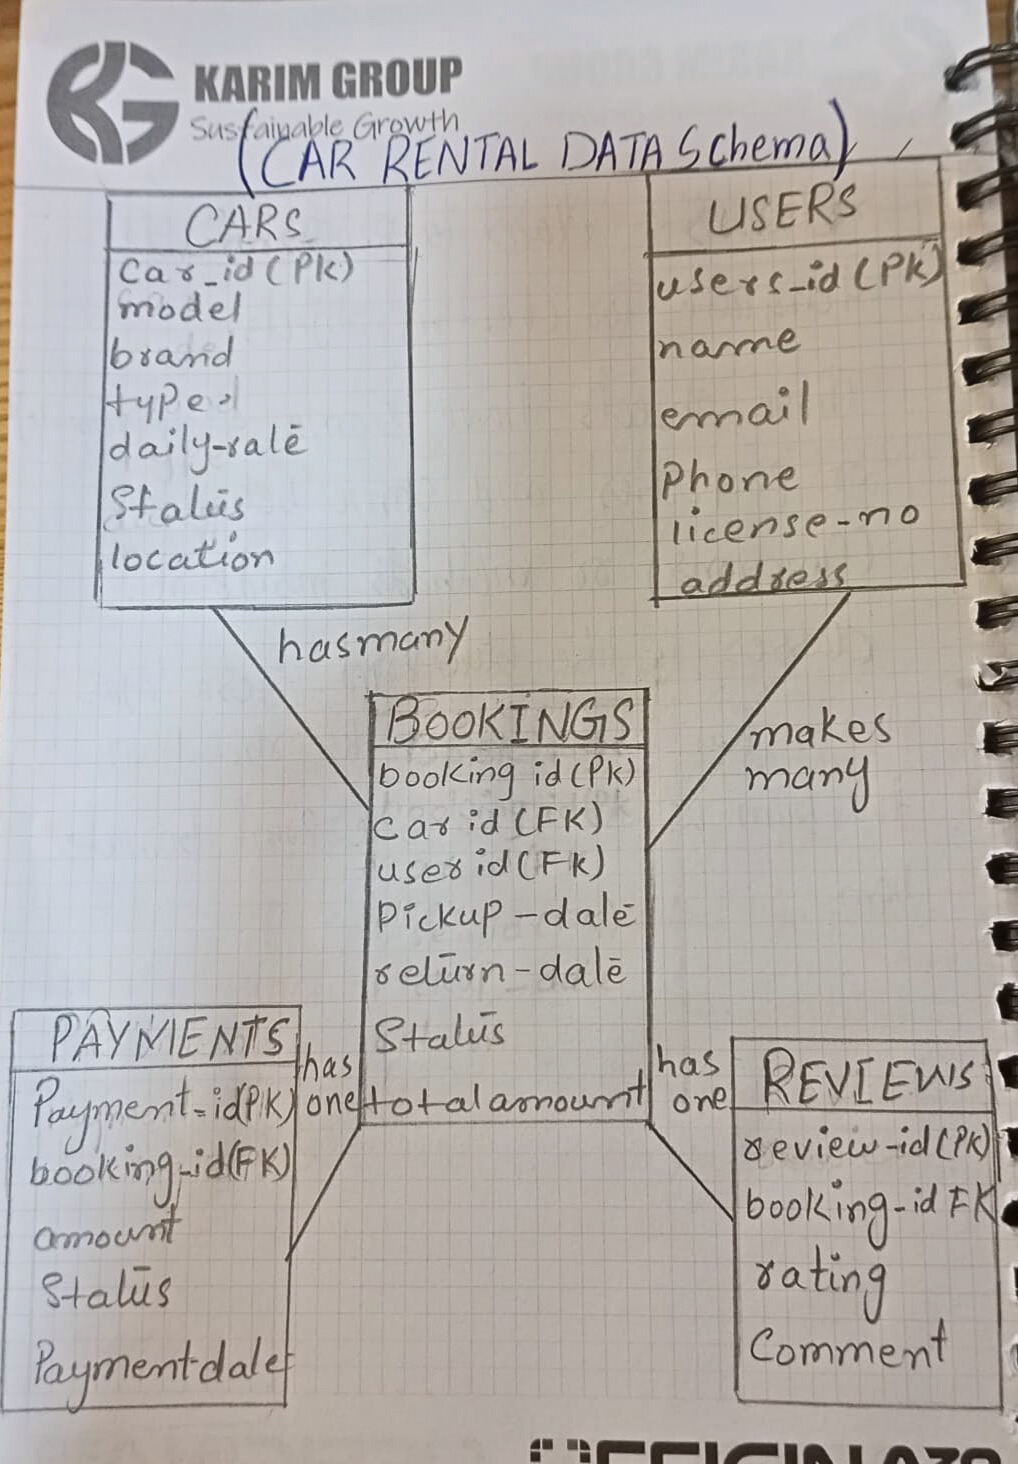 KARIM GROUP
Sustainable Growth
(CAR RENTAL DATA Schema)
CARS
Car_id (PK)
model
brand
type
daily-rate
Status
location
USERS
users_id (PK)
name
email
Phone
license-no
address
has many
makes
many
BOOKINGS
booking id (PK)
car id (FK)
user id (FK)
Pickup-date
return-date
Status
total amount
has
one
has
one
PAYMENTS
Payment-id(PK)
booking-id(FK)
amount
Status
Payment-date
REVIEWS
review-id (PK)
booking-id FK
rating
Comment